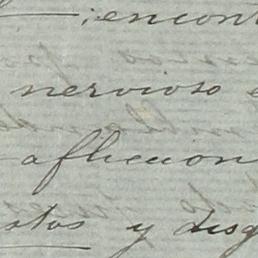 ; encont
nervioso e
afliccion
stos y disg